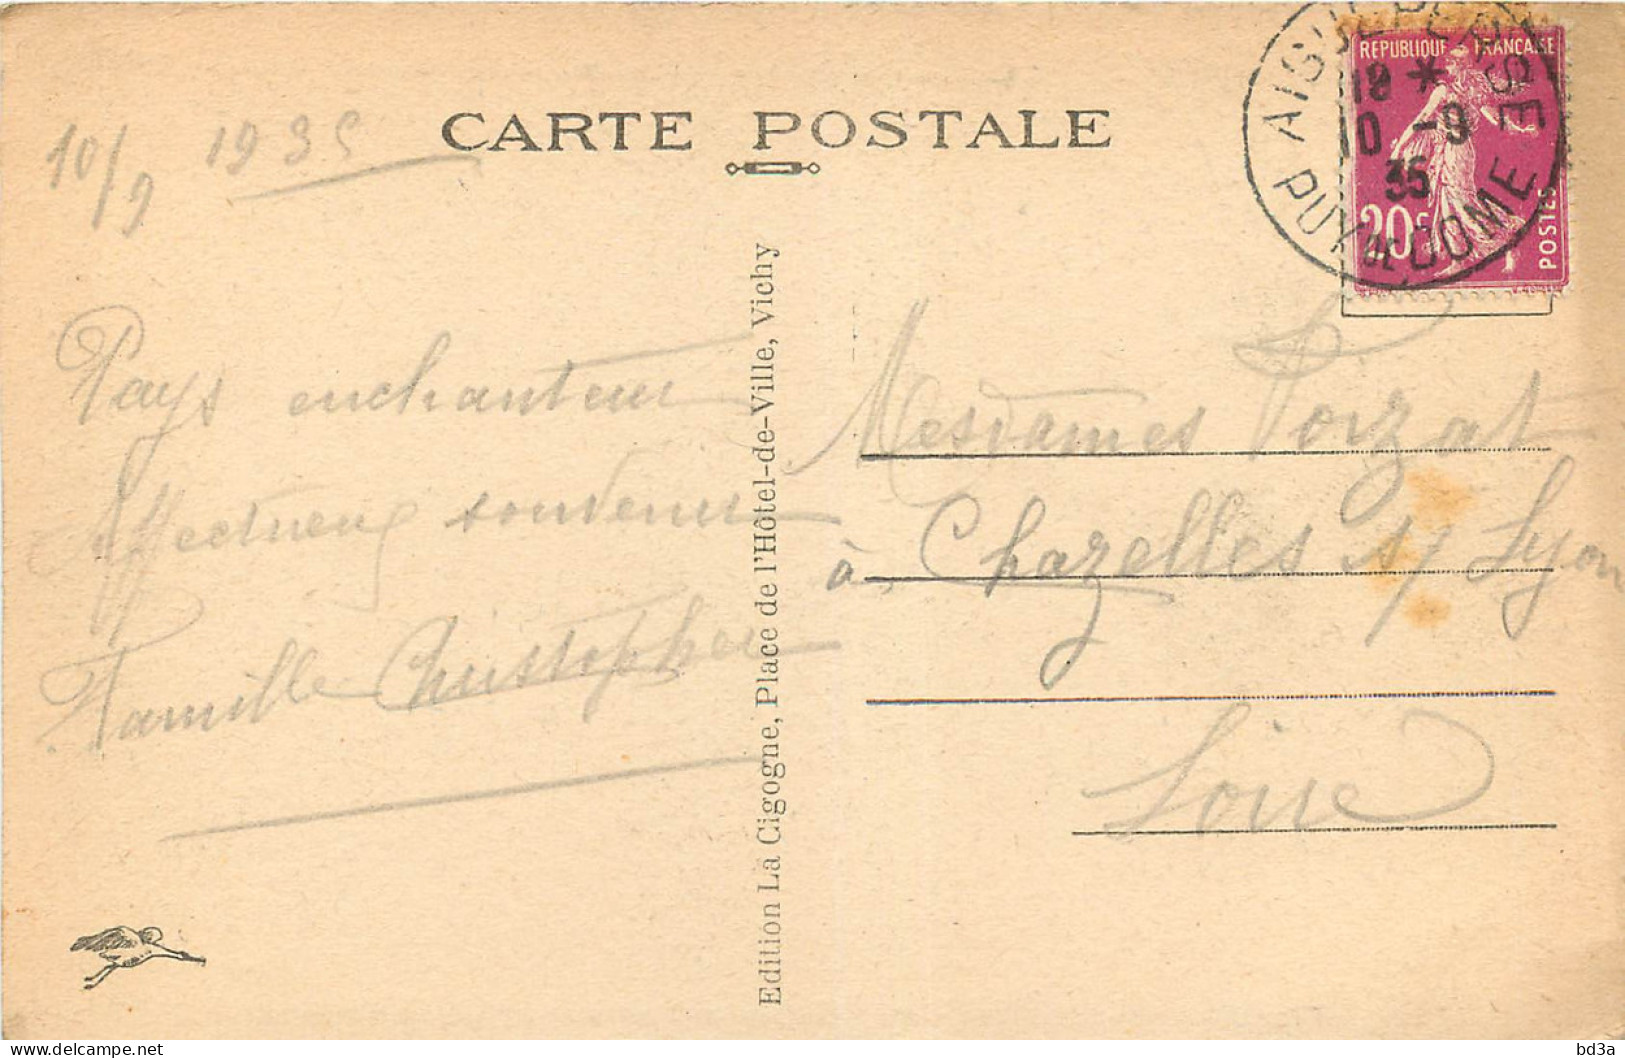 CARTE POSTALE
10/9 1935
Pays enchanteur
Affectueux souvenir
Famille Christophe
Edition La Cigogne, Place de l'Hôtel-de-Ville, Vichy
REPUBLIQUE FRANÇAISE
20c
POSTES
AIGUEPERSE
18 *
10 -9
35
PUY DE DOME
Mesdames Vorzat
à Chazelles s/ Lyon
Loire
bd3a